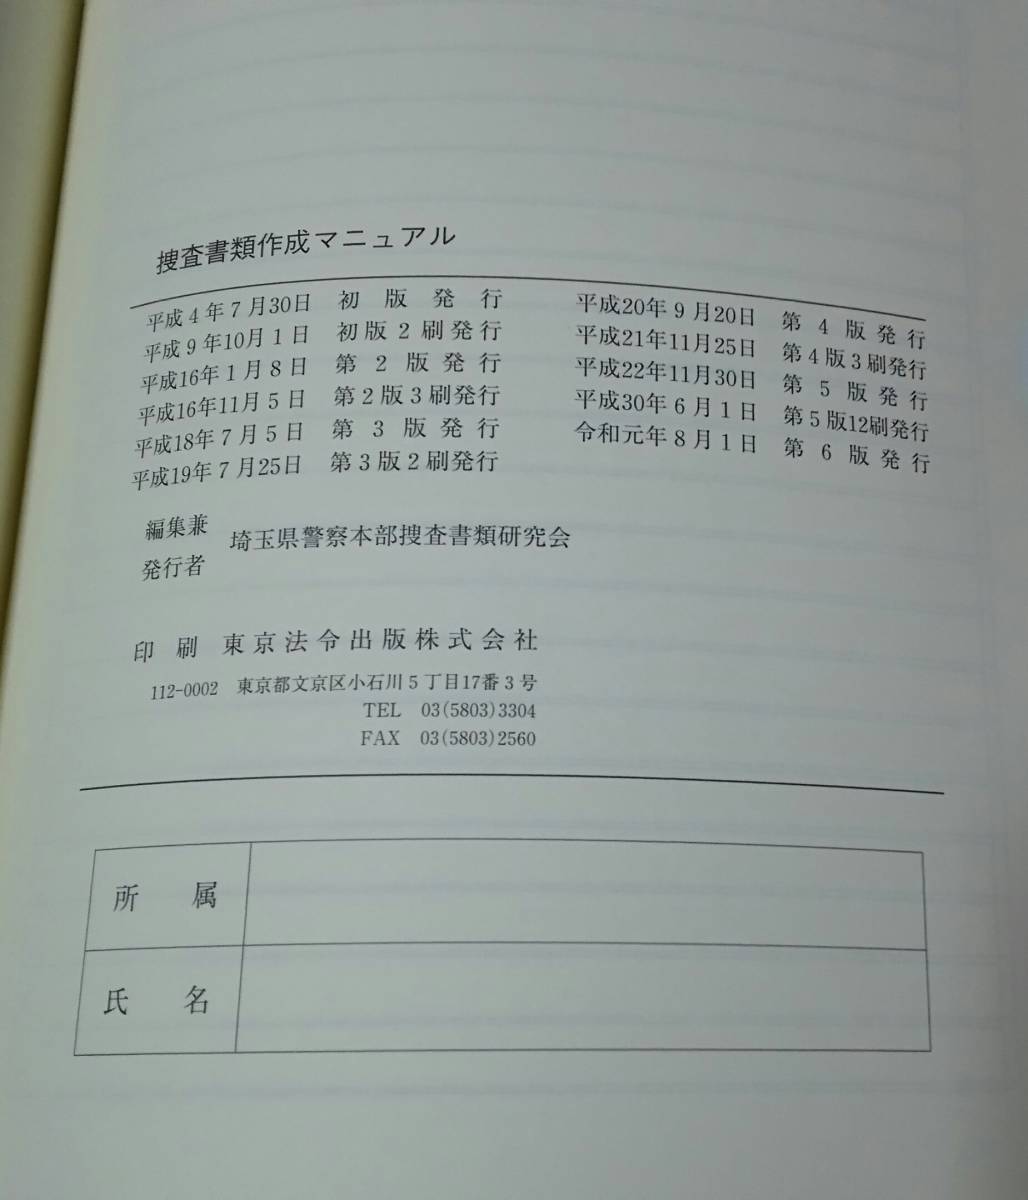 捜査書類作成マニュアル
平成4年7月30日 初版発行
平成9年10月1日 初版2刷発行
平成16年1月8日 第2版発行
平成16年11月5日 第2版3刷発行
平成18年7月5日 第3版発行
平成19年7月25日 第3版2刷発行
平成20年9月20日 第4版発行
平成21年11月25日 第4版3刷発行
平成22年11月30日 第5版発行
平成30年6月1日 第5版12刷発行
令和元年8月1日 第6版発行
編集兼
発行者 埼玉県警察本部捜査書類研究会
印刷 東京法令出版株式会社
112-0002 東京都文京区小石川5丁目17番3号
TEL 03(5803)3304
FAX 03(5803)2560
所属
氏名